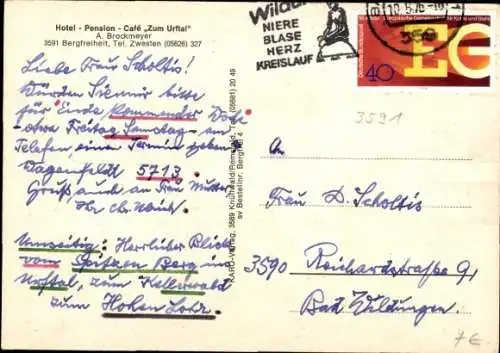 Hotel - Pension - Café „Zum Urftal"
A. Brockmeyer
3591 Bergfreiheit, Tel. Zwesten (05626) 327
Liebe Frau Scholtis!
Würden Sie mir bitte
für Ende kommender Woche
etwa Freitag, Samstag - am
Telefon einen Termin geben.
5713.
Gruß auch an Frau Mutter
Ihr
Umseitig: Herrlicher Blick
vom Spitzen Berg ins
Urftal, zum Kellerwald
zum Hohen Lohr.
3589 Knüllwald/Remsfeld, Tel. (05681) 20 49
Bestellnr. Bergfrei 4
Wildungen
NIERE
BLASE
HERZ
KREISLAUF
359
EG
40
3591
An
Frau D. Scholtis
3590 Reichardstraße 9,
Bad Wildungen.
7€